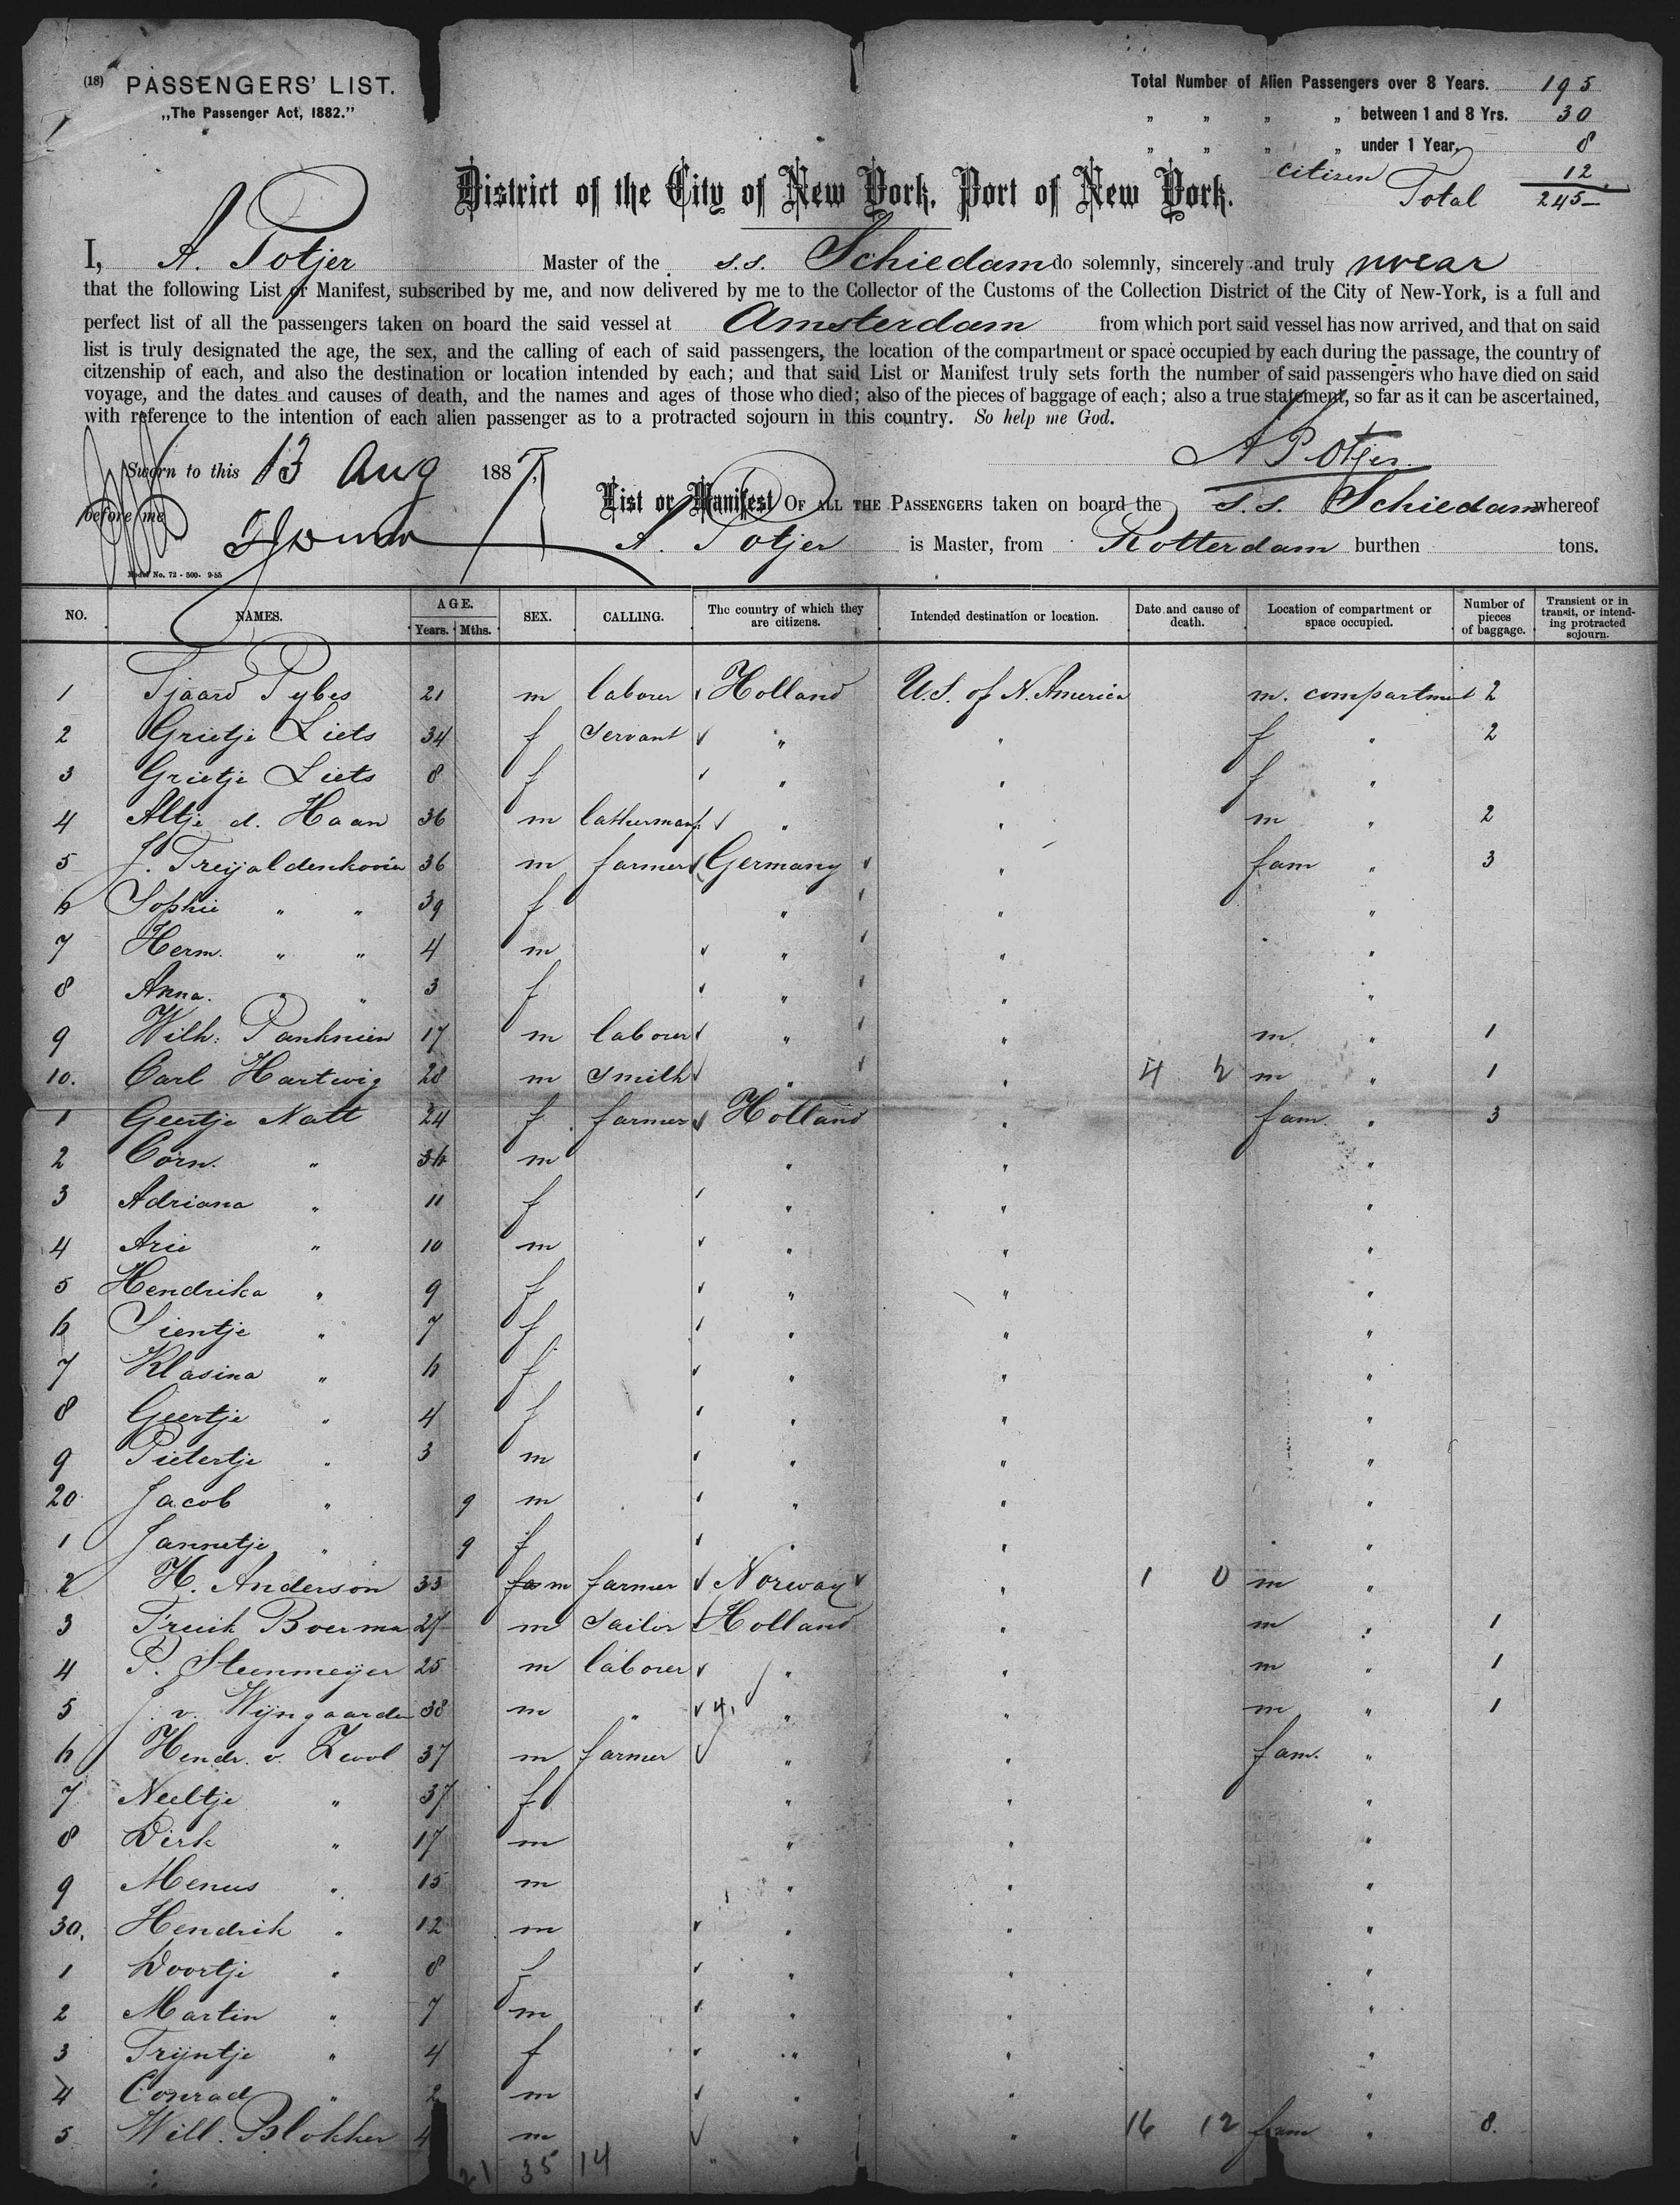 (18) PASSENGERS' LIST.
„The Passenger Act, 1882."
Total Number of Alien Passengers over 8 Years. 195
„ „ „ „ between 1 and 8 Yrs. 30
„ „ „ „ under 1 Year. 8
citizen 12
Total 245
District of the City of New York, Port of New York.
I, A. Potjer Master of the s.s. Schiedam do solemnly, sincerely and truly swear
that the following List or Manifest, subscribed by me, and now delivered by me to the Collector of the Customs of the Collection District of the City of New-York, is a full and
perfect list of all the passengers taken on board the said vessel at Amsterdam from which port said vessel has now arrived, and that on said
list is truly designated the age, the sex, and the calling of each of said passengers, the location of the compartment or space occupied by each during the passage, the country of
citzenship of each, and also the destination or location intended by each; and that said List or Manifest truly sets forth the number of said passengers who have died on said
voyage, and the dates and causes of death, and the names and ages of those who died; also of the pieces of baggage of each; also a true statement, so far as it can be ascertained,
with reference to the intention of each alien passenger as to a protracted sojourn in this country. So help me God.
A Potjer
Sworn to this 13 Aug 1887,
before me
List or Manifest OF ALL THE PASSENGERS taken on board the s.s. Schiedam whereof
A. Potjer is Master, from Rotterdam burthen tons.
Model No. 72 - 500- 9-85
NO. NAMES. AGE. Years. Mths. SEX. CALLING. The country of which they are citizens. Intended destination or location. Date and cause of death. Location of compartment or space occupied. Number of pieces of baggage. Transient or in transit, or intending protracted sojourn.
1 Tjaard Pybes 21 m laborer Holland U.S. of N. America m. compartment 2
2 Grietje Liets 34 f servant " " f " 2
3 Grietje Liets 8 f " " f "
4 Altje d. Haan 36 m " " m " 2
5 J. 36 m farmer Germany " fam " 3
6 Sophie " " 39 f " " "
7 Herm. " " 4 m " " "
8 Anna. " " 3 f " " "
9 Wilh: Panknien 17 m labourer " " m " 1
10. Carl Hartwig 28 m smith " " 4 2 m " 1
1 Geertje Natt 24 f farmer Holland " fam. " 3
2 Corn. " 36 m " " "
3 Adriana " 11 f " " "
4 Arie " 10 m " " "
5 Hendrika " 9 f " " "
6 Sientje " 7 f " " "
7 Klasina " 6 f " " "
8 Geertje " 4 f " " "
9 Pietertje " 3 m " " "
20 Jacob " 9 m " " "
1 Jannetje " 9 f " " "
2 H. Anderson 33 m farmer Norway " 1 0 m "
3 Boerma 27 m sailor Holland " m " 1
4 P. Steenmeijer 25 m laborer " " m " 1
5 J. v. Wijngaarden 38 m " 4. " " m " 1
6 Hendr. v. Zwol 37 m farmer " " fam. "
7 Neeltje " 37 f " " "
8 Dirk " 17 m " " "
9 Menus " 15 m " " "
30. Hendrik " 12 m " " "
1 Doortje " 8 f " " "
2 Martin " 7 m " " "
3 Trijntje " 4 f " " "
4 Conrad " 2 m " " "
5 Will. Blokker 4 m " " 16 12 fam " 8.
21 35 14